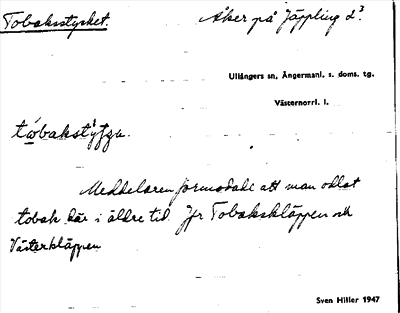 Tobaksstycket. Åker på Jäppling 2³.
Ullångers sn, Ångermanl. s. doms. tg.
Västernorrl. l.
Meddelaren förmodade att man odlat
tobak här i äldre tid. Jfr Tobakskläppen och
Västerkläppen
Sven Hiller 1947